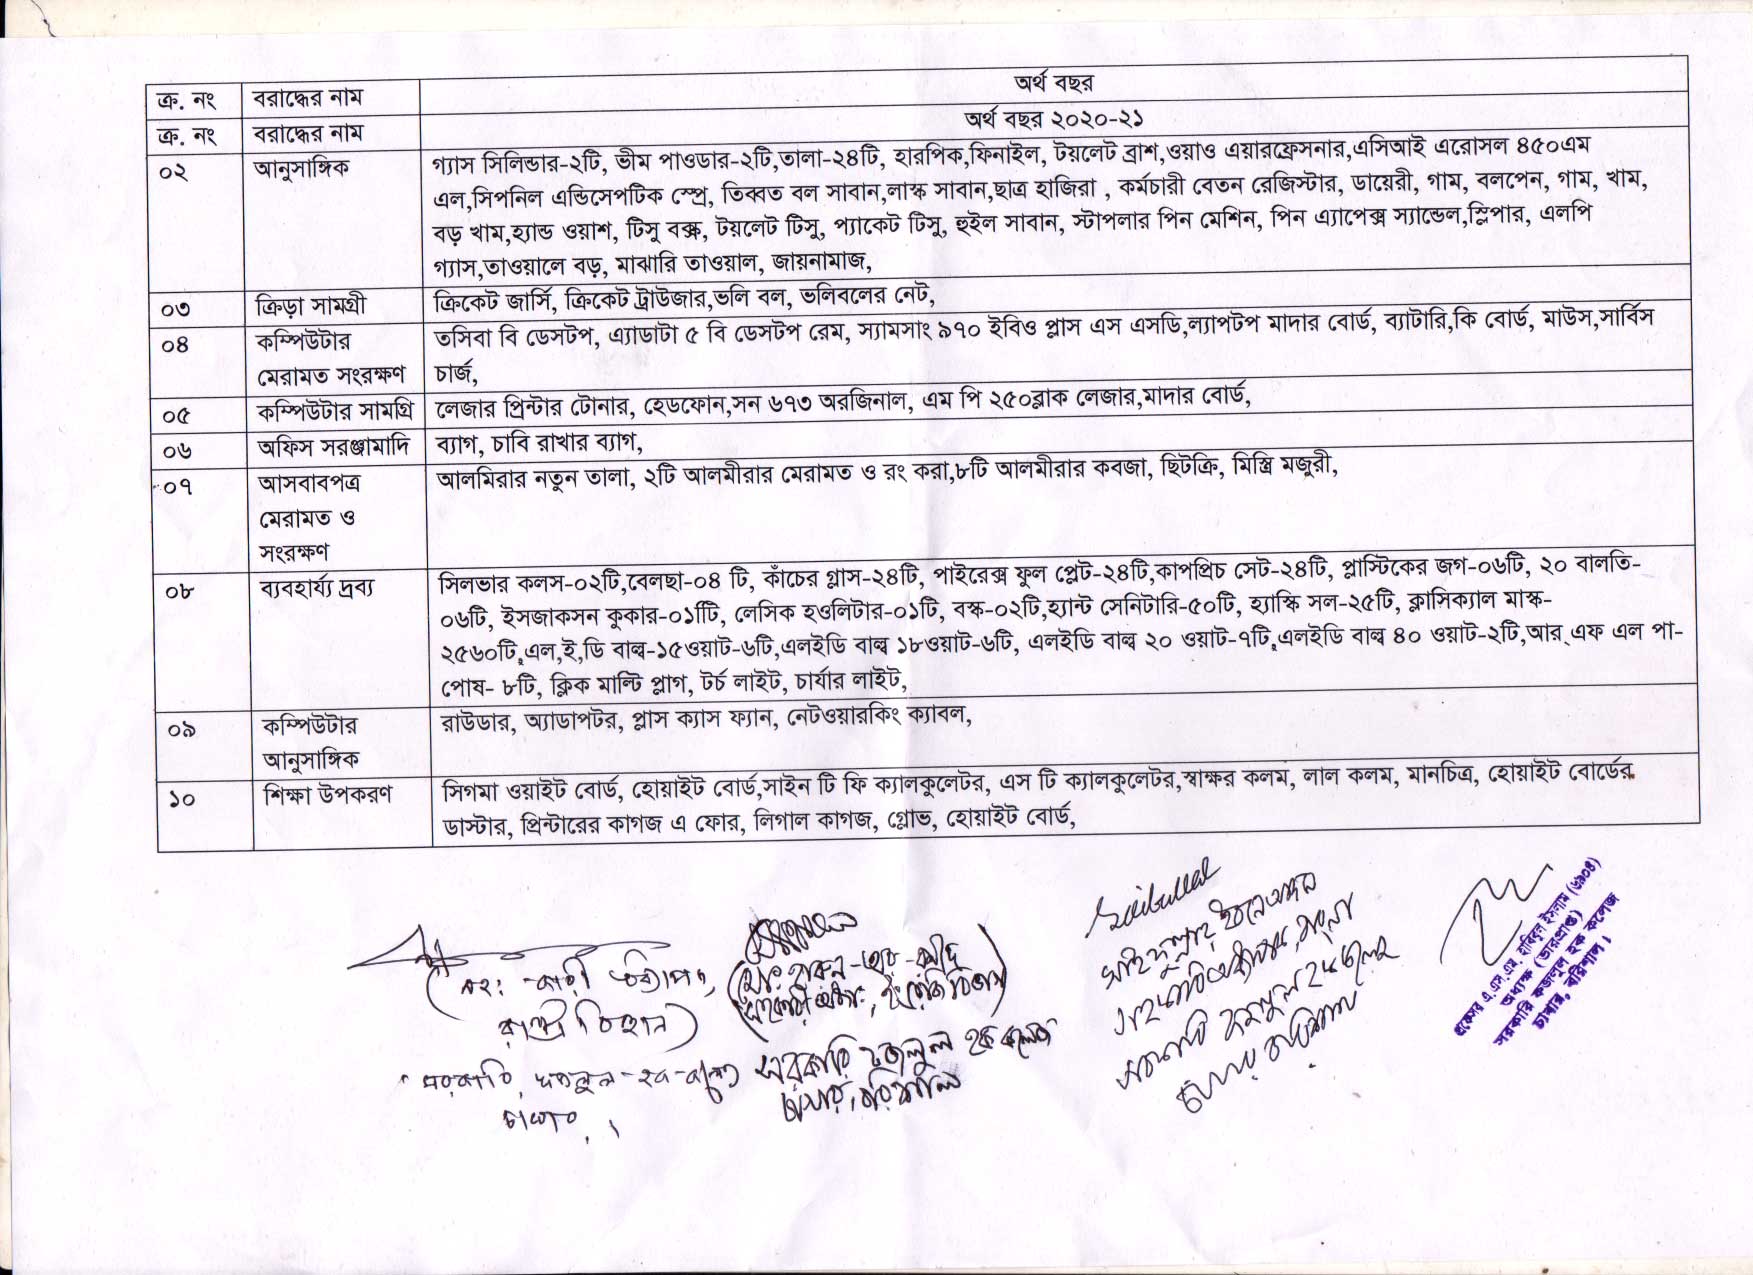 ক্র. নং বরাদ্ধের নাম অর্থ বছর
ক্র. নং বরাদ্ধের নাম অর্থ বছর ২০২০-২১
০২ আনুসাঙ্গিক গ্যাস সিলিন্ডার-২টি, ভীম পাওডার-২টি,তালা-২৪টি, হারপিক,ফিনাইল, টয়লেট ব্রাশ,ওয়াও এয়ারফ্রেসনার,এসিআই এরোসল ৪৫০এম
এল,সিপনিল এন্ডিসেপটিক স্প্রে, তিব্বত বল সাবান,লাস্ক সাবান,ছাত্র হাজিরা , কর্মচারী বেতন রেজিস্টার, ডায়েরী, গাম, বলপেন, গাম, খাম,
বড় খাম,হ্যান্ড ওয়াশ, টিসু বক্স, টয়লেট টিসু, প্যাকেট টিসু, হুইল সাবান, স্টাপলার পিন মেশিন, পিন এ্যাপেক্স স্যান্ডেল,স্লিপার, এলপি
গ্যাস,তাওয়ালে বড়, মাঝারি তাওয়াল, জায়নামাজ,
০৩ ক্রিড়া সামগ্রী ক্রিকেট জার্সি, ক্রিকেট ট্রাউজার,ভলি বল, ভলিবলের নেট,
০৪ কম্পিউটার তসিবা বি ডেসটপ, এ্যাডাটা ৫ বি ডেসটপ রেম, স্যামসাং ৯৭০ ইবিও প্লাস এস এসডি,ল্যাপটপ মাদার বোর্ড, ব্যাটারি,কি বোর্ড, মাউস,সার্বিস
মেরামত সংরক্ষণ চার্জ,
০৫ কম্পিউটার সামগ্রি লেজার প্রিন্টার টোনার, হেডফোন,সন ৬৭৩ অরজিনাল, এম পি ২৫০ব্লাক লেজার,মাদার বোর্ড,
০৬ অফিস সরঞ্জামাদি ব্যাগ, চাবি রাখার ব্যাগ,
০৭ আসবাবপত্র আলমিরার নতুন তালা, ২টি আলমীরার মেরামত ও রং করা,৮টি আলমীরার কবজা, ছিটক্রি, মিস্ত্রি মজুরী,
মেরামত ও
সংরক্ষণ
০৮ ব্যবহার্য্য দ্রব্য সিলভার কলস-০২টি,বেলছা-০৪ টি, কাঁচের গ্লাস-২৪টি, পাইরেক্স ফুল প্লেট-২৪টি,কাপপ্রিচ সেট-২৪টি, প্লাস্টিকের জগ-০৬টি, ২০ বালতি-
০৬টি, ইসজাকসন কুকার-০১টি, লেসিক হওলিটার-০১টি, বস্ক-০২টি,হ্যান্ট সেনিটারি-৫০টি, হ্যাস্কি সল-২৫টি, ক্লাসিক্যাল মাস্ক-
২৫৬০টি,এল,ই,ডি বাল্ব-১৫ওয়াট-৬টি,এলইডি বাল্ব ১৮ওয়াট-৬টি, এলইডি বাল্ব ২০ ওয়াট-৭টি,এলইডি বাল্ব ৪০ ওয়াট-২টি,আর এফ এল পা-
পোষ- ৮টি, ক্লিক মাল্টি প্লাগ, টর্চ লাইট, চার্যার লাইট,
০৯ কম্পিউটার রাউডার, অ্যাডাপটর, প্লাস ক্যাস ফ্যান, নেটওয়ারকিং ক্যাবল,
আনুসাঙ্গিক
১০ শিক্ষা উপকরণ সিগমা ওয়াইট বোর্ড, হোয়াইট বোর্ড,সাইন টি ফি ক্যালকুলেটর, এস টি ক্যালকুলেটর,স্বাক্ষর কলম, লাল কলম, মানচিত্র, হোয়াইট বোর্ডের
ডাস্টার, প্রিন্টারের কাগজ এ ফোর, লিগাল কাগজ, গ্লোভ, হোয়াইট বোর্ড,
রাষ্ট্র বিজ্ঞান)
(মোঃ হারুন-অর-রশীদ
ইংরেজি বিভাগ)
সরকারি ফজলুল হক কলেজ
চাখার, বরিশাল
প্রফেসর এ.এস.এম. হাবিবুল ইসলাম (৬৯০৪)
অধ্যক্ষ (ভারপ্রাপ্ত)
সরকারি ফজলুল হক কলেজ
চাখার, বরিশাল।